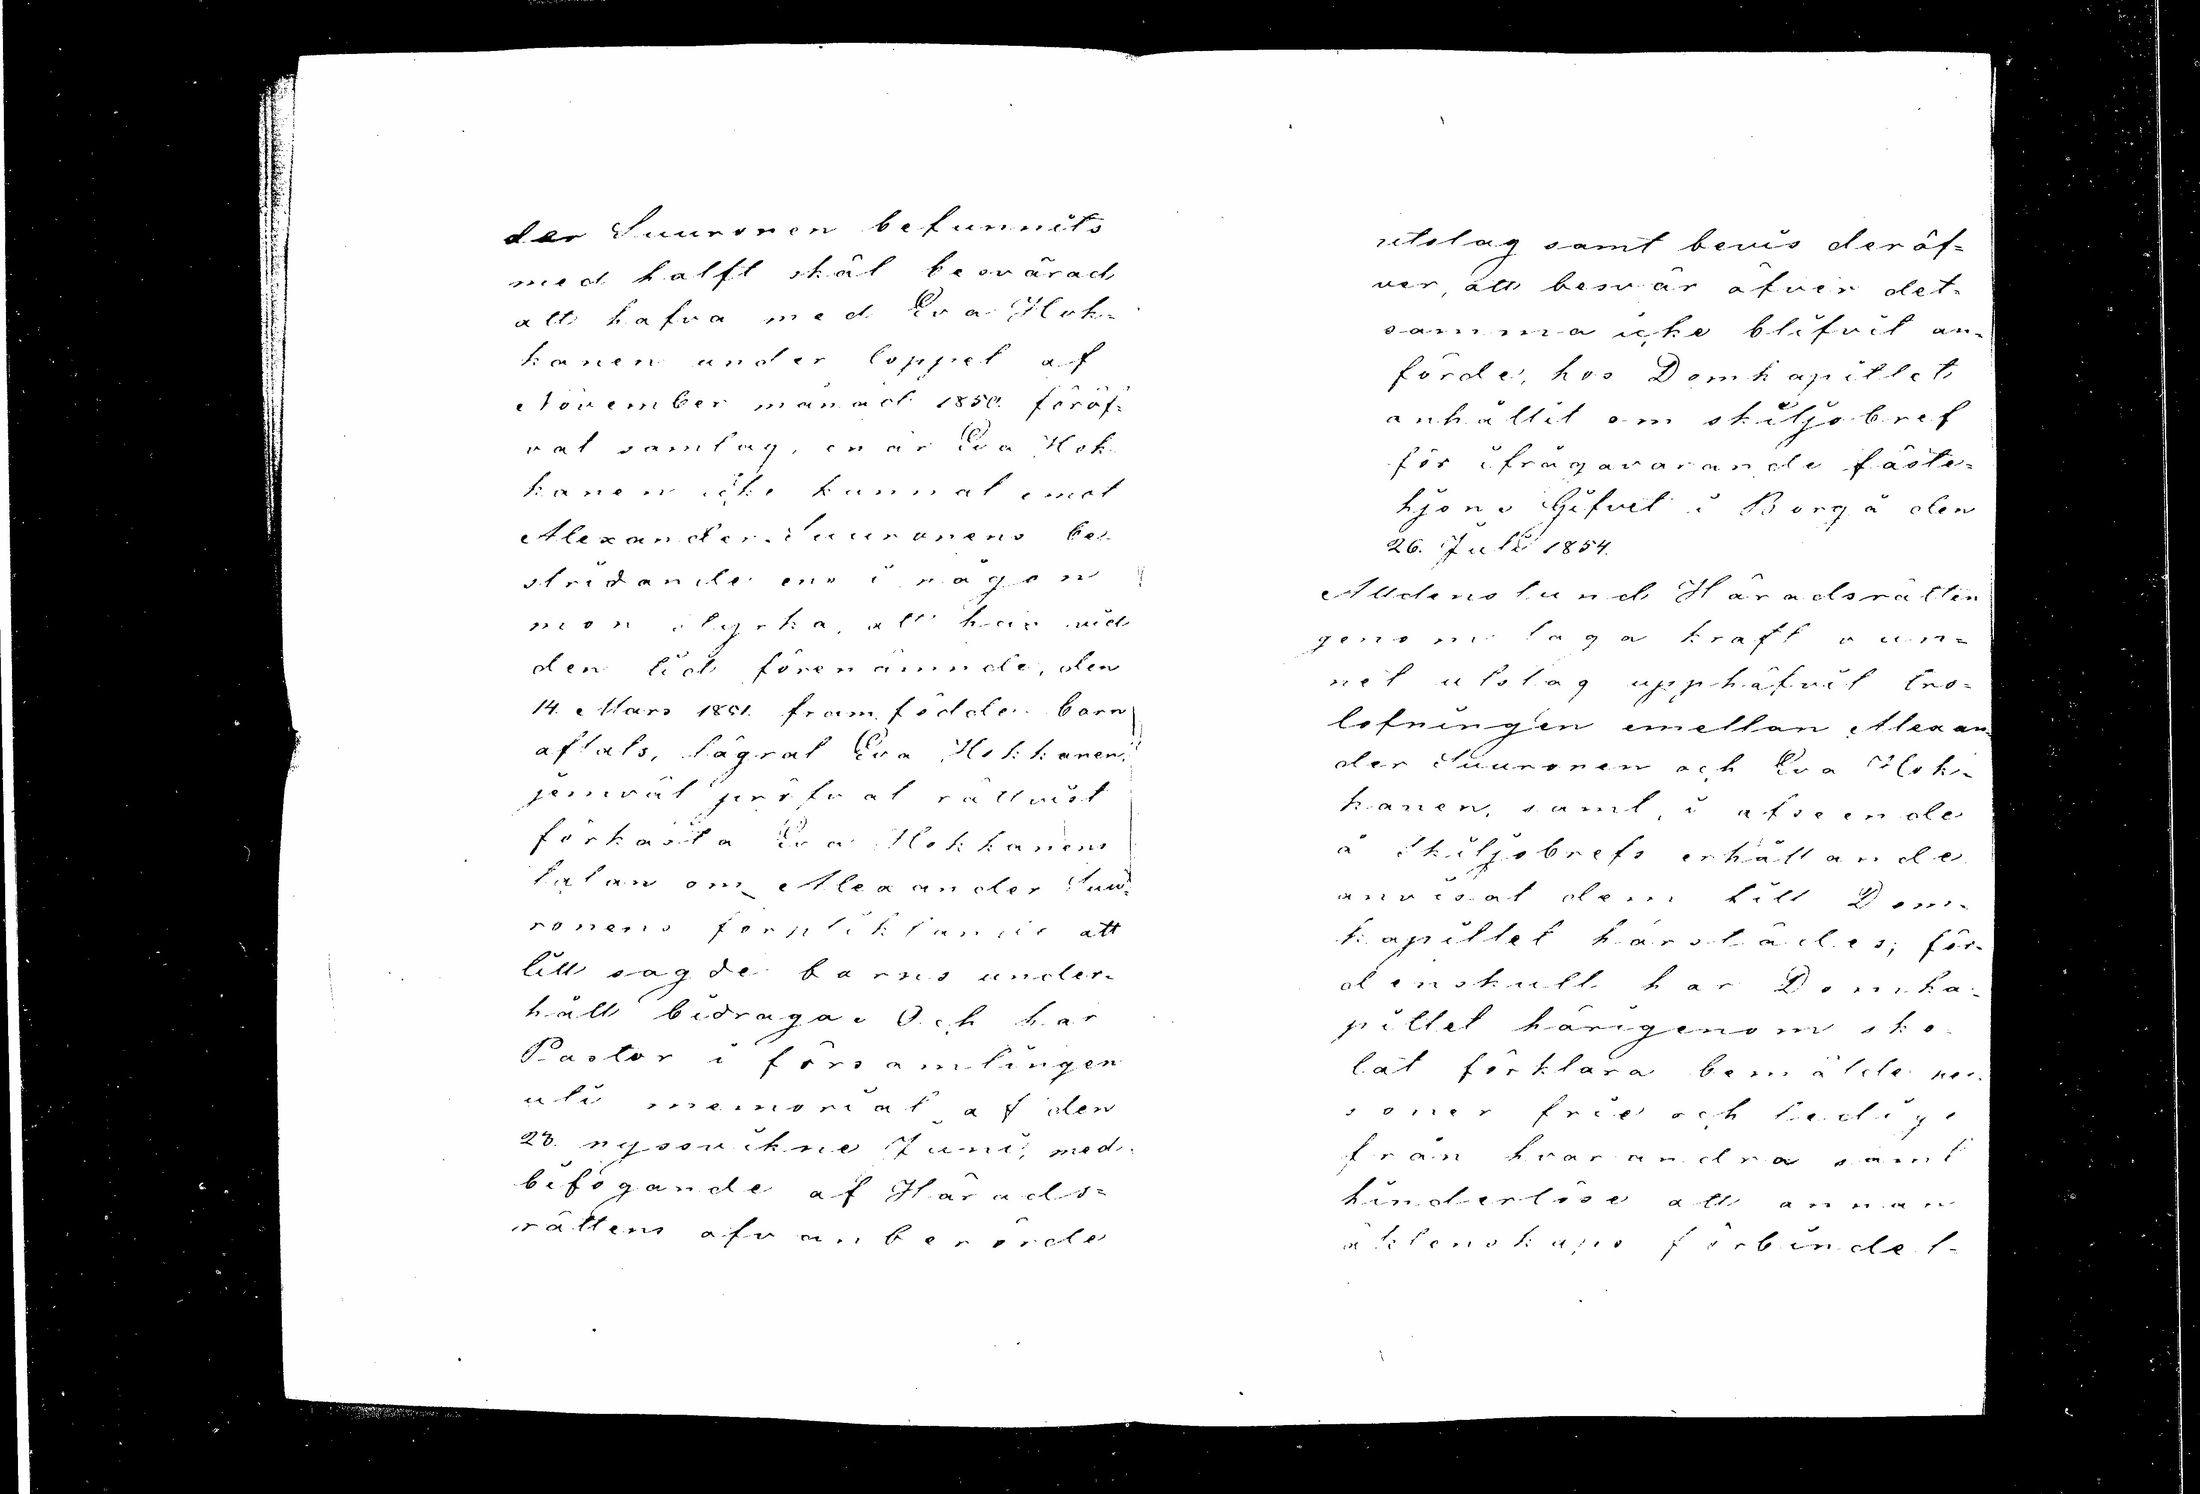 der Suuronen befunnits
med halft skäl besvärad
att hafva med Eva Hok=
kanen under loppet af
November månad 1850. föröf=
vat samlag, enär Eva Hok
kanen icke kunnat emot
Alexander Suuronens be=
stridande ens i någon
mon styrka, att hon vid
den tid förenämnde, den
14. Mars 1851. framfödde barn
aflats, lagrat Eva Hokkanen,
jemväl pröfvat rättvist
förkasta Eva Hokkanens
talan om Alexander Suu=
ronens förpliktande att
till sagde barns under=
håll bidraga. Och har
Pastor i församlingen
uti memorial af den
28. nyssvikne Juni, med
bifogande af Härads=
rättens ofvanberörde
utslag samt bevis deröf=
ver, att besvär öfver det=
samma icke blifvit an=
förde, hos Domkapitlet
anhållit om skiljobref
för ifrågavarande fäste=
hjon. Gifvet i Borgå den
26. Juli 1854.
Alldenstund Häradsrätten
genom laga kraft vun=
net utslag upphäfvit tro=
lofningen emellan Alexan
der Suuronen och Eva Hok=
kanen, samt, i afseende
å Skiljobrefs erhållande
anvisat dem till Dom=
kapitlet härstädes; för=
denskull har Domka=
pitlet härigenom sko=
lat förklara bemälde per=
soner frie och ledige
från hvarandra samt
hinderlöse att annan
äktenskaps förbindel=